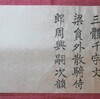 三體千字文
梁貟外散騎侍
郎周興嗣次韻